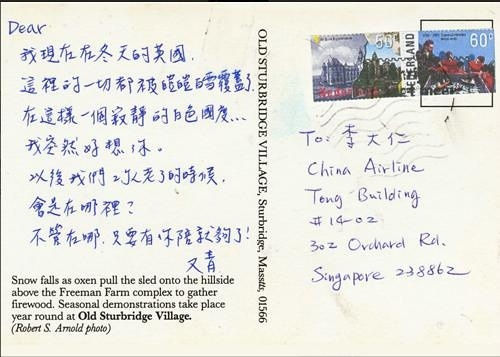 Dear
我現在在冬天的英國.
這裡的一切都被皚皚白雪覆蓋了.
在這樣一個寂靜的白色國度...
我突然好想你.
以後我們2人老了的時候,
會是在哪裡?
不管在哪,只要有你陪就夠了!
又青
Snow falls as oxen pull the sled onto the hillside
above the Freeman Farm complex to gather
firewood. Seasonal demonstrations take place
year round at Old Sturbridge Village.
(Robert S. Arnold photo)
OLD STURBRIDGE VILLAGE, Sturbridge, Massts, 01566
50c
NEDERLAND
60c
To: 李大仁
China Airline
Tong Building
#14-02
302 Orchard Rd.
Singapore 238862